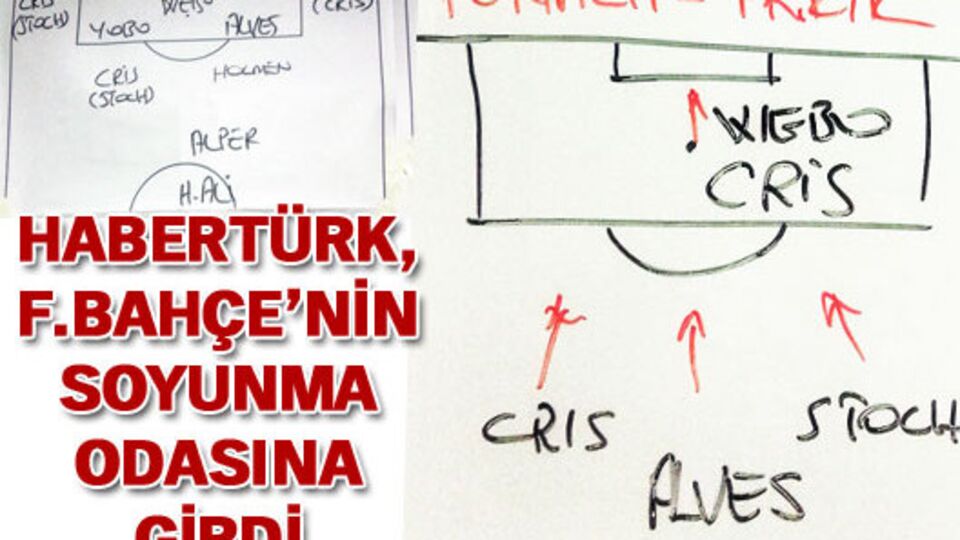 CRIS
(STOCH)
WEBO
(CRIS)
YOBO
ALVES
CRIS
(STOCH)
HOLMEN
ALPER
H.ALİ
HABERTÜRK,
F.BAHÇE'NİN
SOYUNMA
ODASINA
GİRDİ
WEBO
CRIS
CRIS
STOCH
ALVES